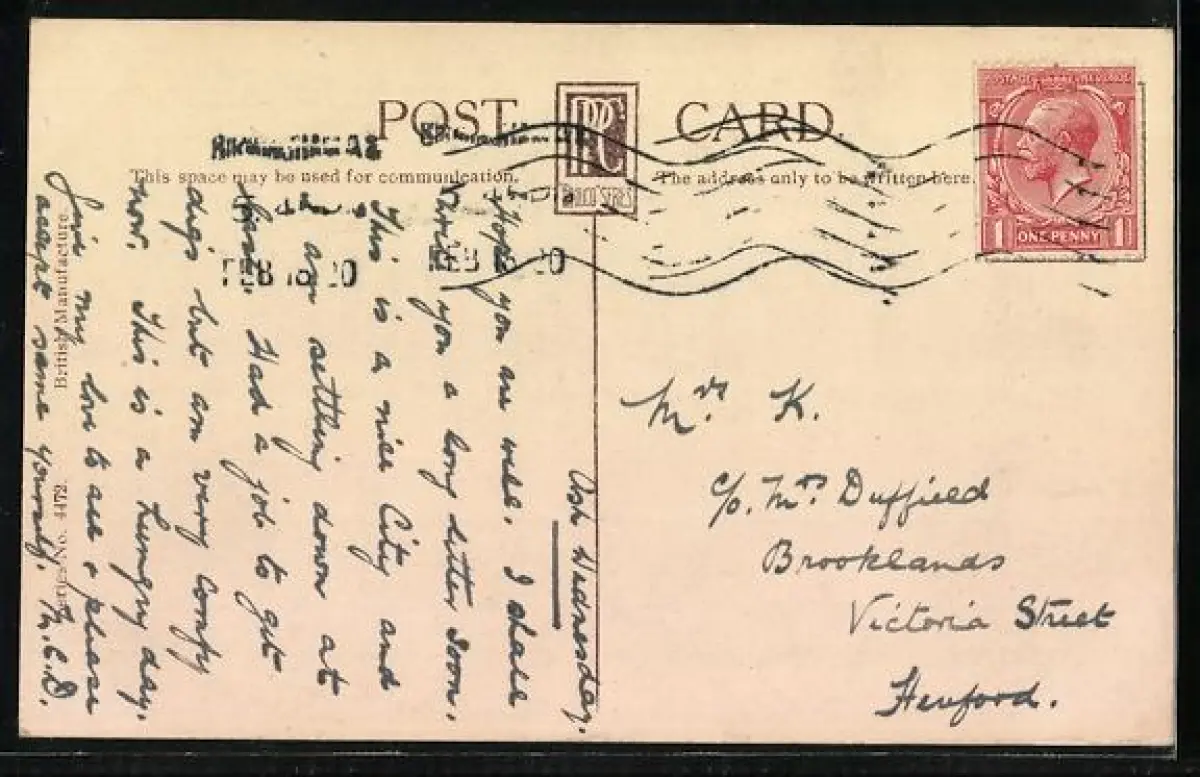 POST CARD.
This space may be used for communication.
The address only to be written here.
POSTAGE REVENUE
1 ONE PENNY 1
FEB 18 20
FEB 18 20
British Manufacture.
Series No. 4472.
Ash Wednesday.
Hope you are well. I shall
write you a long letter soon.
This is a nice City and
I am settling down at
last. Had a job to get
digs but am very comfy
now. This is a hungry day.
Give my love to all & please
accept same yourself. M.C.D.
Mrs K.
c/o. Mrs Duffield
Brooklands
Victoria Street
Hereford.